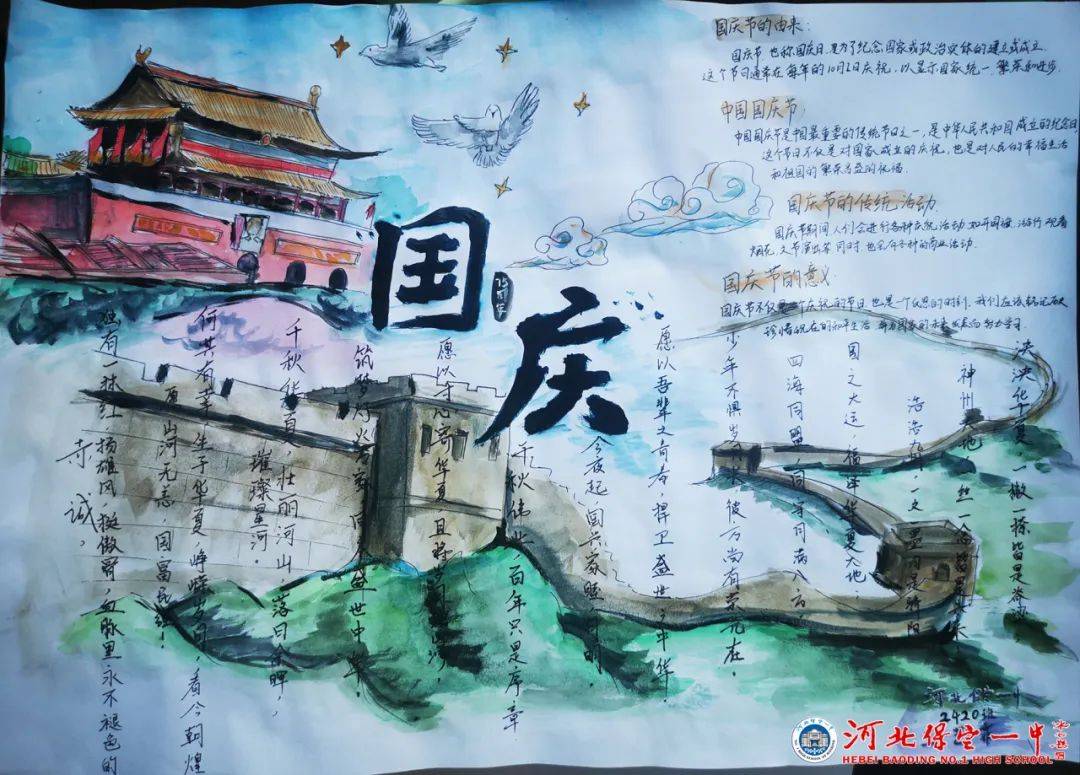 国庆
75周年
国庆节的由来：
国庆节，也称国庆日，是为了纪念国家或政治实体的建立或成立
这个节日通常在每年的10月1日庆祝，以显示国家统一、繁荣和进步。
中国国庆节
中国国庆节是中国最重要的传统节日之一，是中华人民共和国成立的纪念日
这个节日不仅是对国家成立的庆祝，也是对人民的幸福生活
和祖国的繁荣昌盛的祝福。
国庆节的传统活动
国庆节期间人们会进行各种庆祝活动 如升国旗 游行 观看
烟花、文艺演出等 同时 也会有各种的商业活动.
国庆节的意义
国庆节不仅是一个庆祝的节日，也是一个反思的时刻，我们应该铭记历史
珍惜现在的和平生活 并为国家的未来发展而努力学习.
泱泱华夏，一撇一捺皆是
神州大地
浩浩九州，一文一墨间是骄阳
国之大运，福泽华夏大地.
四海同盟，同
少年不惧岁月长，彼方尚有荣光在.
愿以吾辈之青春，捍卫盛世之中华.
今夜起，国兴家睦
千秋伟业，百年只是序章
愿以寸心寄华夏，且将岁月
筑梦 盛世中华.
千秋华夏，壮丽河山，落日余晖，
璀璨星河.
何其有幸，生于华夏，峥嵘岁月，看今朝煌
山河无恙，国富民
有一抹红，扬雄风，挺傲骨，血脉里永不褪色的
诚。
河北保定一中
2420班
河北保定一中
HEBEI BAODING NO.1 HIGH SCHOOL